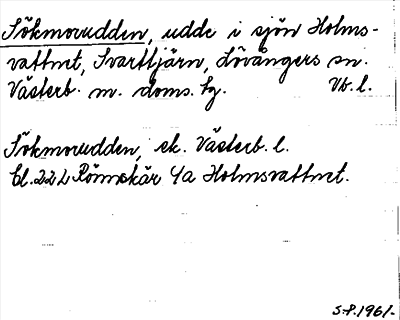 Sökmorudden, udde i sjön Holms-
vattnet, Svarttjärn, Lövångers sn.
Västerb. n. doms. tg. Vb. l.
Sökmorudden, ek. Västerb. l.
Bl. 22 L Rönnskär 4a Holmsvattnet.
S.P. 1961.